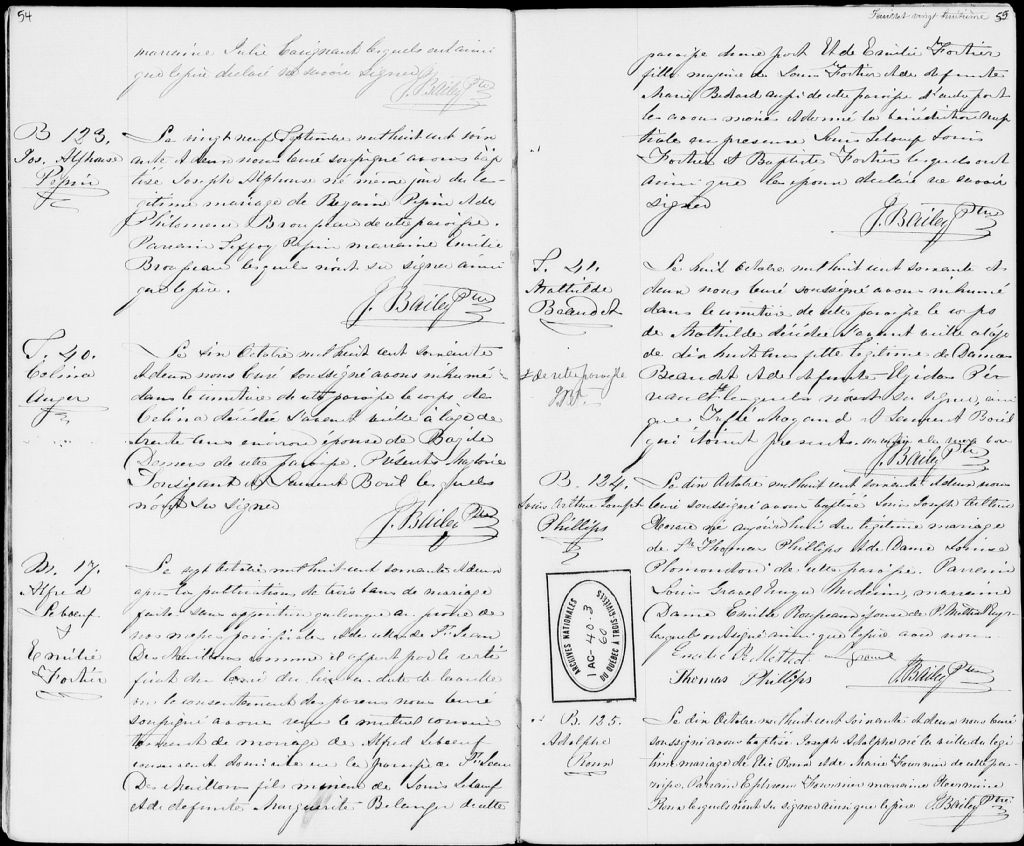 54
marraine Julie Carignant lesquels ont ainsi
que le père déclaré ne savoir signer
J. Bailey Ptre
B 123.
Jos. Alphonse
Pepin
Le vingt neuf Septembre mil huit cent soix
ante et deux nous curé soussigné avons bap
tisé Joseph Alphonse né même jour du lé
gitime mariage de Pepin et de
Philomene Brouseau de cette paroisse.
Parrain Pepin marraine Emilie
Brouseau lesquels n'ont su signer ainsi
que le père.
J. Bailey Ptre
S. 40.
Celina
Auger
Le six Octobre mil huit cent soixante
et deux nous Curé soussigné avons inhumé
dans le cimetière de cette paroisse le corps de
Celina décédée l'avant veille à l'âge de
trente ans environ épouse de Basile
Demers de cette paroisse. Présents
Tousignant et Laurent Boril lesquels
n'ont su signer
J. Bailey Ptre
M. 17.
Alfred
Leboeuf
Emilie
Fortier
Le sept Octobre mil huit cent soixante et deux
après la publication de trois bans de mariage
faite sans opposition quelconque au prône de
nos messes paroissiales et de celles de St. Jean
Des Chaillons comme il appert par le certi
ficat du curé du lieu en date de la veille
vu le consentement des parens nous curé
soussigné avons reçu le mutuel consen
tement de mariage de Alfred Leboeuf
domicilié en la paroisse St. Jean
Des Chaillons fils mineur de Louis Leboeuf
et de defunte Marguerite Belanger de cette
Feuillet vingt huitième 55
paroisse d'une part Et de Emilie Fortier
fille majeure de Louis Fortier et de defunte
Marie Bedard aussi de cette paroisse d'autre part
les avons mariés et donné la bénédiction nup
tiale en presence Louis Leboeuf Louis
Fortier et Baptiste Fortier lesquels ont
ainsi que les époux déclaré ne savoir
signer
J. Bailey Ptre
S. 41.
Mathilde
Beaudet
+ de cette paroisse
J.B. Ptr
Le huit Octobre mil huit cent soixante et
deux nous curé soussigné avons inhumé
dans le cimetière de cette paroisse le corps
de Mathilde décédée l'avant veille à l'âge
de dix huit ans fille legitime de Damas
Beaudet et de defunte Elzida Per
reault + lesquels n'ont su signer, ainsi
que Mayrand et Laurent Boril
qui étoient présents.
J. Bailey Ptre
B. 124.
Louis Joseph
Phillips
Le dix Octobre mil huit cent soixante et deux nous
curé soussigné avons baptisé Louis Joseph Arthur
Horace né aujourd'hui du légitime mariage
de Sr. Thomas Phillips et de Dame Louise
Plomondon de cette paroisse. Parrain
Louis Gravel Medecin, marraine
Dame Emilie Rousseau épouse de P. Methot
lesquels ont signé ainsi que le père avec nous
Emilie R. Methot L. Gravel
Thomas Phillips J. Bailey Ptre
ARCHIVES NATIONALES
1 AC-40-3
60
DU QUÉBEC À TROIS-RIVIÈRES
B. 125.
Adolphe
Roux
Le dix Octobre mil huit cent soixante et deux nous curé
soussigné avons baptisé Joseph Adolphe né la veille du légi
time mariage de Elie Roux et de Marie Fournier de cette pa
roisse. Parrain Ephrem Fournier marraine
Roux lesquels n'ont su signer ainsi que le père J. Bailey Ptre